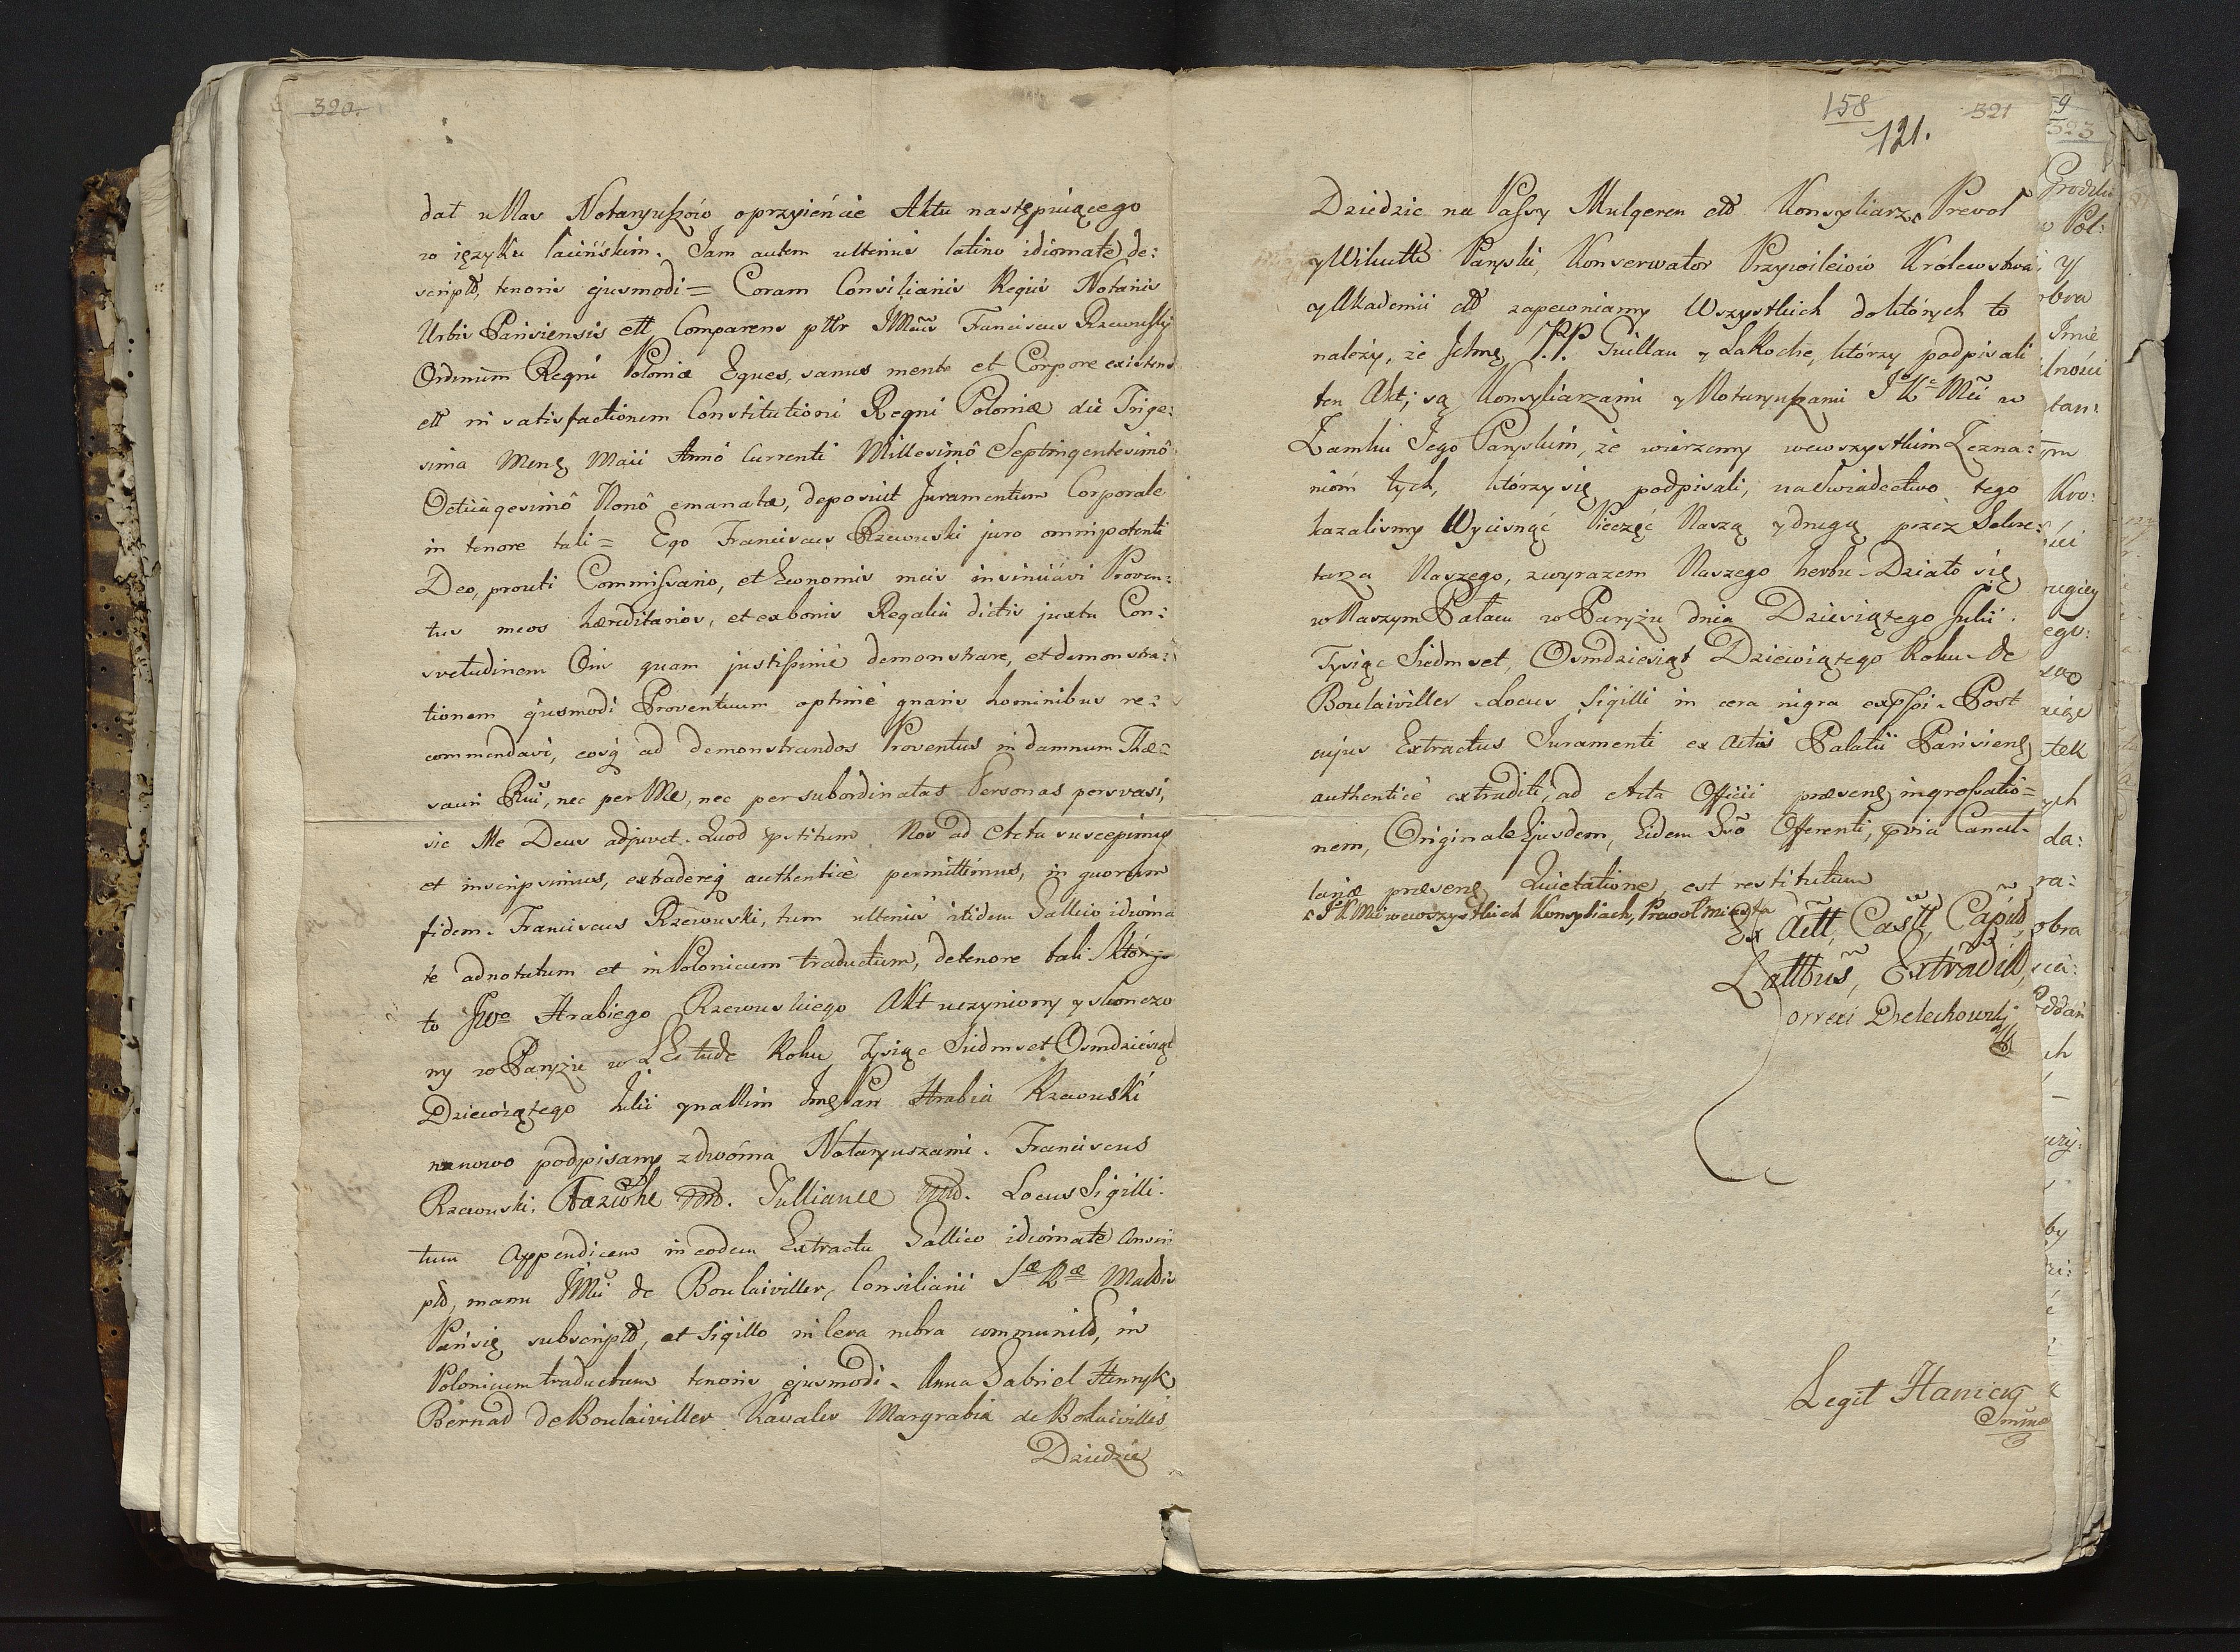 320.
dał u Nas Notaryuszów o przyięcie Aktu następuiącego
w ięzyku łacińskim. Jam autem ulterius latino idiomate de:
scripto, tenoris ejusmodi = Coram Consiliariis Regiis Notariis
Urbis Parisiensis ett Comparens Franciscus Rzewuski
Ordinum Regni Poloniæ Eques, sanus mente et Corpore existens
ett in satisfactionem Constitutioni Regni Poloniæ die Trige:
sima Mens Maii Anno Currenti Millesimô Septingentesimô
Octuagesimô Nonô emanatæ, deposuit Juramentum Corporale
in tenore tali = Ego Franciscus Rzewuski juro omnipotenti
Deo, prouti Commissario, et Economis meis insinuavi Proven:
tus meos hæreditarios, et ex bonis Regaliu dictis juxta Con:
svetudinem quam justissimè demonstrare, et demonstra:
tionem ejusmodi Proventuum optimè gnaris hominibus re:
commendavi, eosq ad demonstrandos Proventus in damnum The:
sauri nec per Me, nec per subordinatas Personas persvasi,
sic Me Deus adjuvet. Quod Nos ad Acta suscepimus
et inscripsimus, extradereq authenticè permittimus, in quorum
fidem. Franciscus Rzewuski, tum ulterius itidem Gallico idioma
te adnotatum et in Polonicum traductum, de tenore tali.
to Hrabiego Rzewuskiego Akt uczyniony y skonczo
ny w Paryżu w Roku Tysiąc Siedmset Osmdziesiąt
Dziewiątego Julii Pan Hrabia Rzewuski
na nowo podpisany z dwóma Notaryuszami. Franciscus
Rzewuski. Locus Sigilli.
tum Appendicem in eodem Extractu Gallico idiomate Conscri
pto, manu de Boulaiviller, Consiliarii Sæ Ræ
subscripto, et Sigillo in Cera rubra communito, in
Polonicum traductum tenoris ejusmodi. Anna Gabriel Henryk
Bernad de Boulaiviller Kawaler Margrabia de Bolaivilles,
Dziedzic
158
321
121.
Dziedzic na Passy Mulgeren ett Konsyliarz Prevot
y Wikutte Paryski, Konserwator Przywileiów Królewstwa,
y Akademii ett zapewniamy Wszystkich do których to
należy, że Ichmę PP. Guillau y LaRoche, którzy podpisali
ten Akt, są Konsyliarzami y Notaryuszami w
Zamku Jego Paryskim, że wierzemy we wszystkim Zezna:
niom tych, którzy się podpisali, na Swiadectwo tego
kazalismy Wycisnąć Pieczęć Naszą y drugą przez Sekre:
tarza Naszego, z wyrazem Naszego herbu. Działo się
w Naszym Pałacu w Paryżu dnia Dziewiątego Julii
Tysiąc Siedmset, Osmdziesiąt Dziewiątego Roku. de
Boulaiviller. Locus Sigilli in cera nigra Post
cujus Extractus Juramenti ex Actis Palatii Parisiens
authenticè extraditi, ad Acta Officii præsens ingrossatio=
nem, Originale Ejusdem, Eidem Offerenti, Cancel-
lariæ præsens Quietatione, est restitutum
we wszystkich Konsyliach, Prewot Miasta
Ex Actt, Castt, Capit,
Extradit,
Legit Hanicky